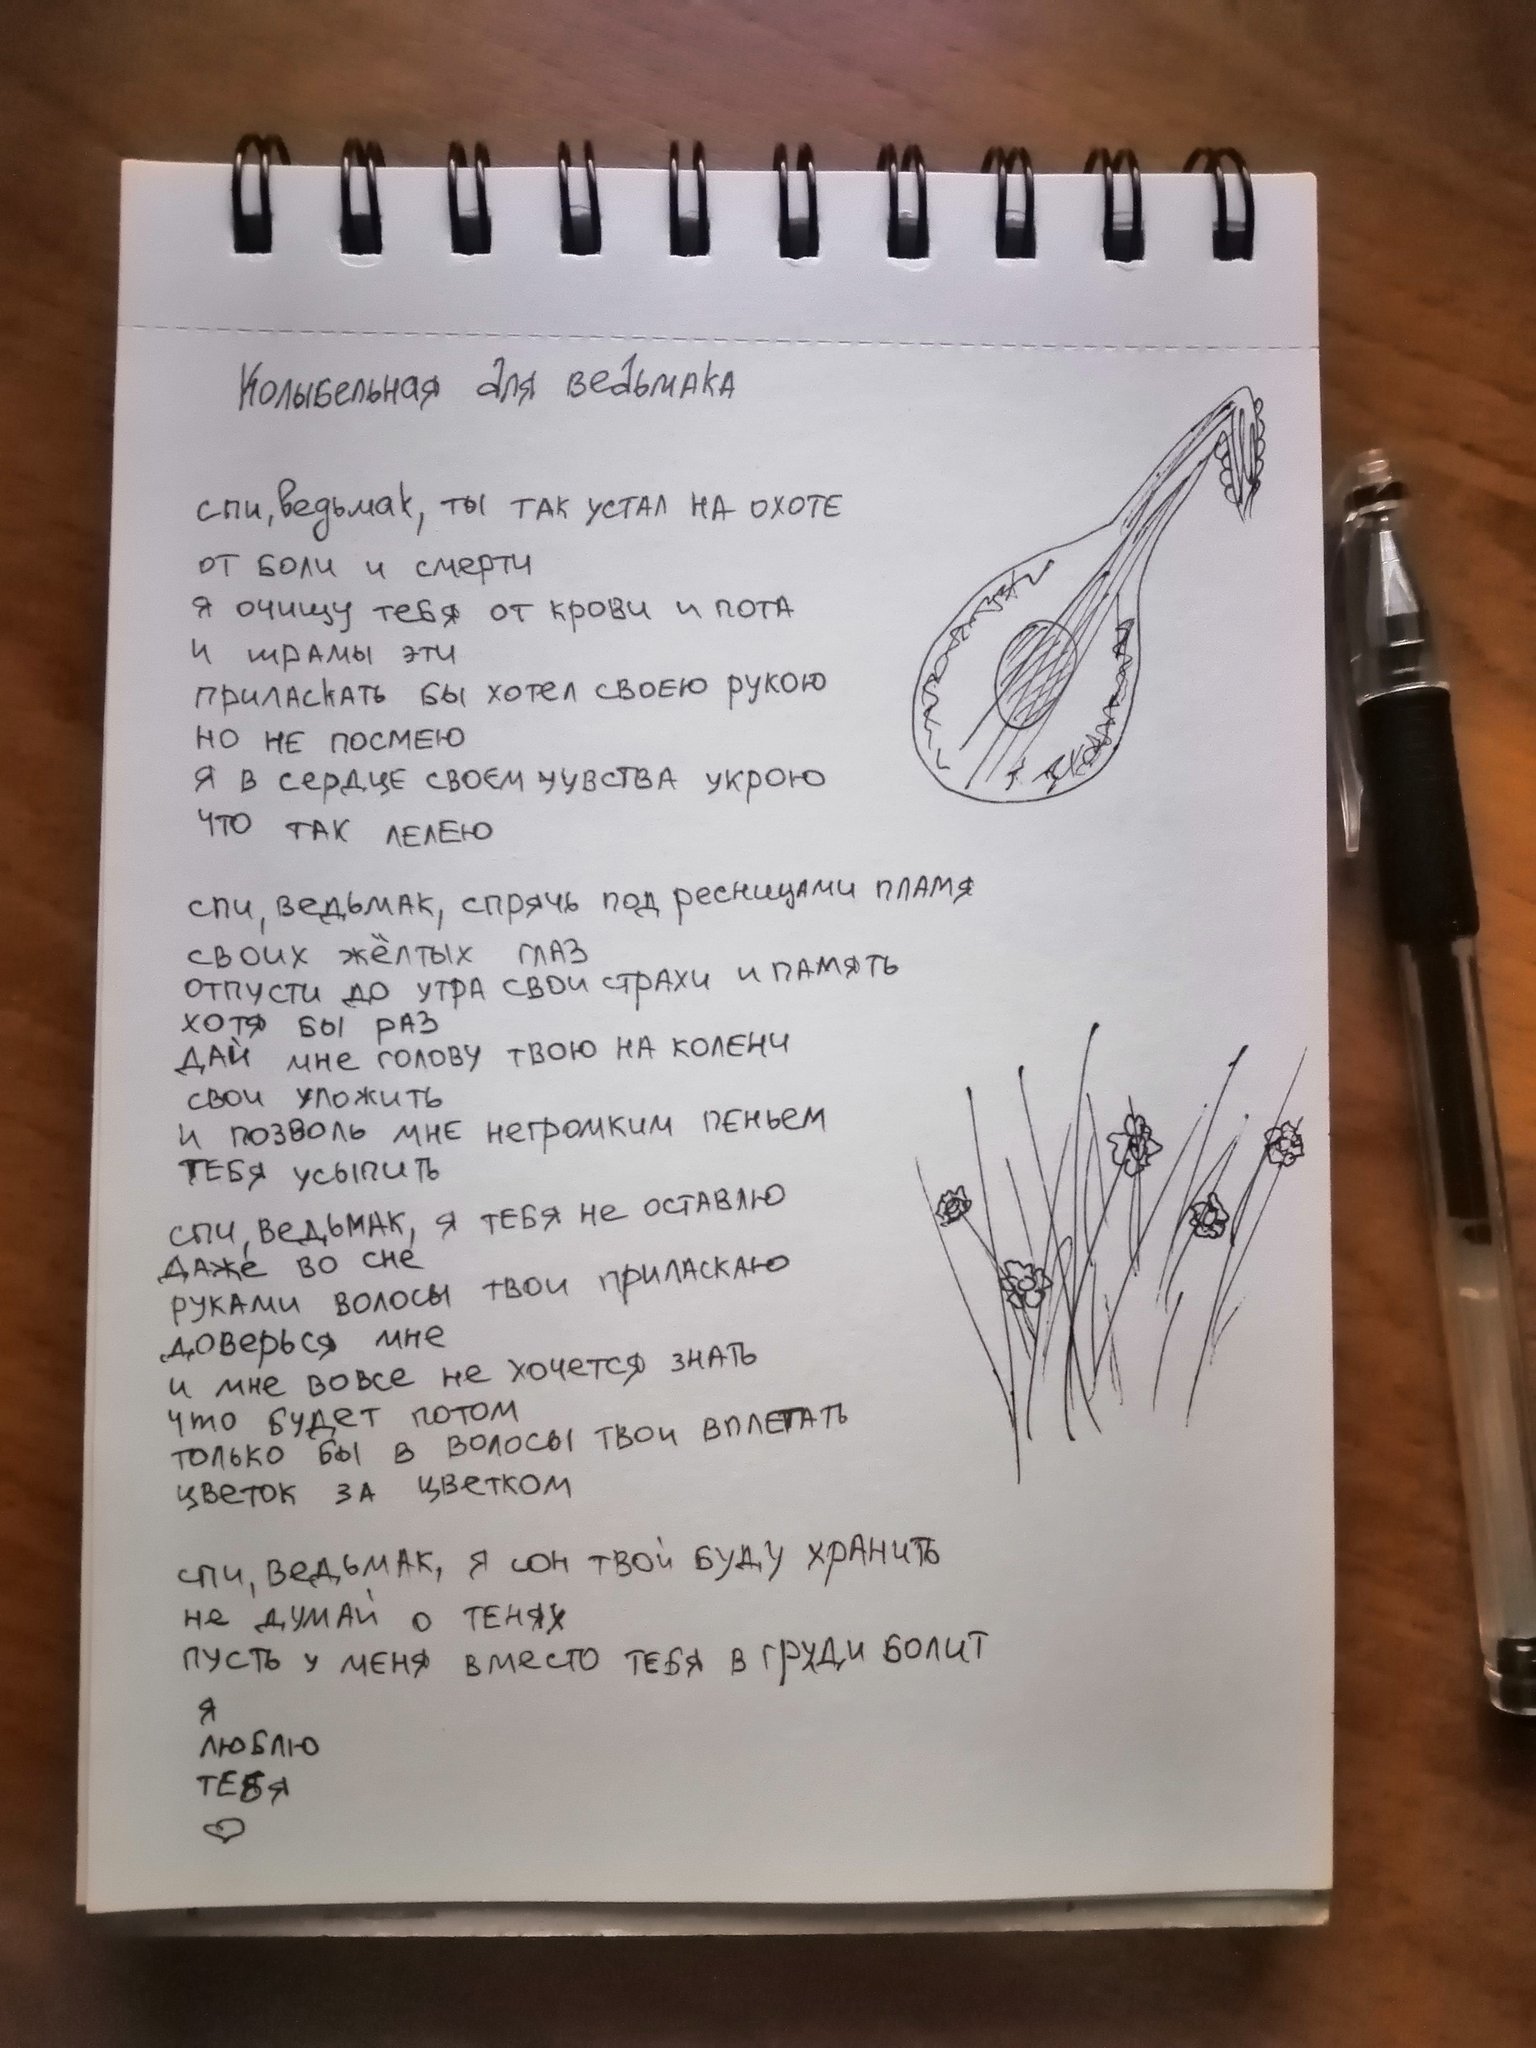 Колыбельная для ведьмака
спи, ведьмак, ты так устал на охоте
от боли и смерти
я очищу тебя от крови и пота
и шрамы эти
приласкать бы хотел своею рукою
но не посмею
я в сердце своём чувства укрою
что так лелею
спи, ведьмак, спрячь под ресницами пламя
своих жёлтых глаз
отпусти до утра свои страхи и память
хотя бы раз
дай мне голову твою на колени
свои уложить
и позволь мне негромким пеньем
тебя усыпить
спи, ведьмак, я тебя не оставлю
даже во сне
руками волосы твои приласкаю
доверься мне
и мне вовсе не хочется знать
что будет потом
только бы в волосы твои вплетать
цветок за цветком
спи, ведьмак, я сон твой буду хранить
не думай о тенях
пусть у меня вместо тебя в груди болит
я
люблю
тебя